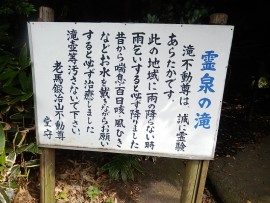 霊泉の滝
滝不動尊は、誠に霊験
あらたかです。
此の地域に雨の降らない時
雨乞いすると必ず降りました
昔から喘息、百日咳、風ひき
などお水を戴きながらお願い
すると必ず治癒しました
滝壺等汚さないで下さい。
老馬鍛冶山不動尊
堂守